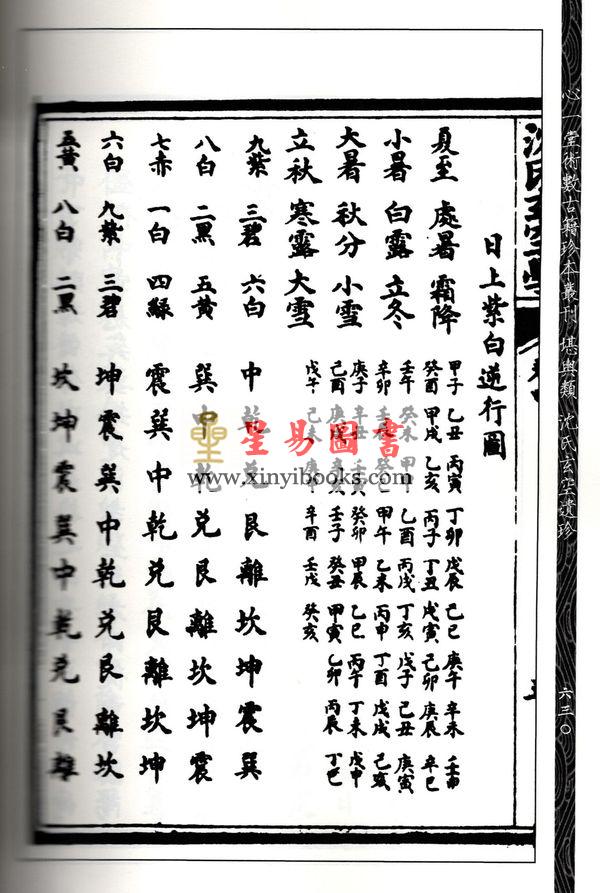 心一堂術數古籍珍本叢刊 堪輿類 沈氏玄空遺珍
六三〇
日上紫白逆行圖
夏至 處暑 霜降
小暑 白露 立冬
大暑 秋分 小雪
立秋 寒露 大雪
甲子 乙丑 丙寅 丁卯 戊辰 己巳 庚午 辛未 壬申
癸酉 甲戌 乙亥 丙子 丁丑 戊寅 己卯 庚辰 辛巳
壬午 癸未 甲申 乙酉 丙戌 丁亥 戊子 己丑 庚寅
辛卯 壬辰 癸巳 甲午 乙未 丙申 丁酉 戊戌 己亥
庚子 辛丑 壬寅 癸卯 甲辰 乙巳 丙午 丁未 戊申
己酉 庚戌 辛亥 壬子 癸丑 甲寅 乙卯 丙辰 丁巳
戊午 己未 庚申 辛酉 壬戌 癸亥
九紫 三碧 六白 中 乾 兌 艮 離 坎 坤 震 巽
八白 二黑 五黃 巽 中 乾 兌 艮 離 坎 坤 震
七赤 一白 四綠 震 巽 中 乾 兌 艮 離 坎 坤
六白 九紫 三碧 坤 震 巽 中 乾 兌 艮 離 坎
五黃 八白 二黑 坎 坤 震 巽 中 乾 兌 艮 離
星易圖書
www.xinyibooks.com